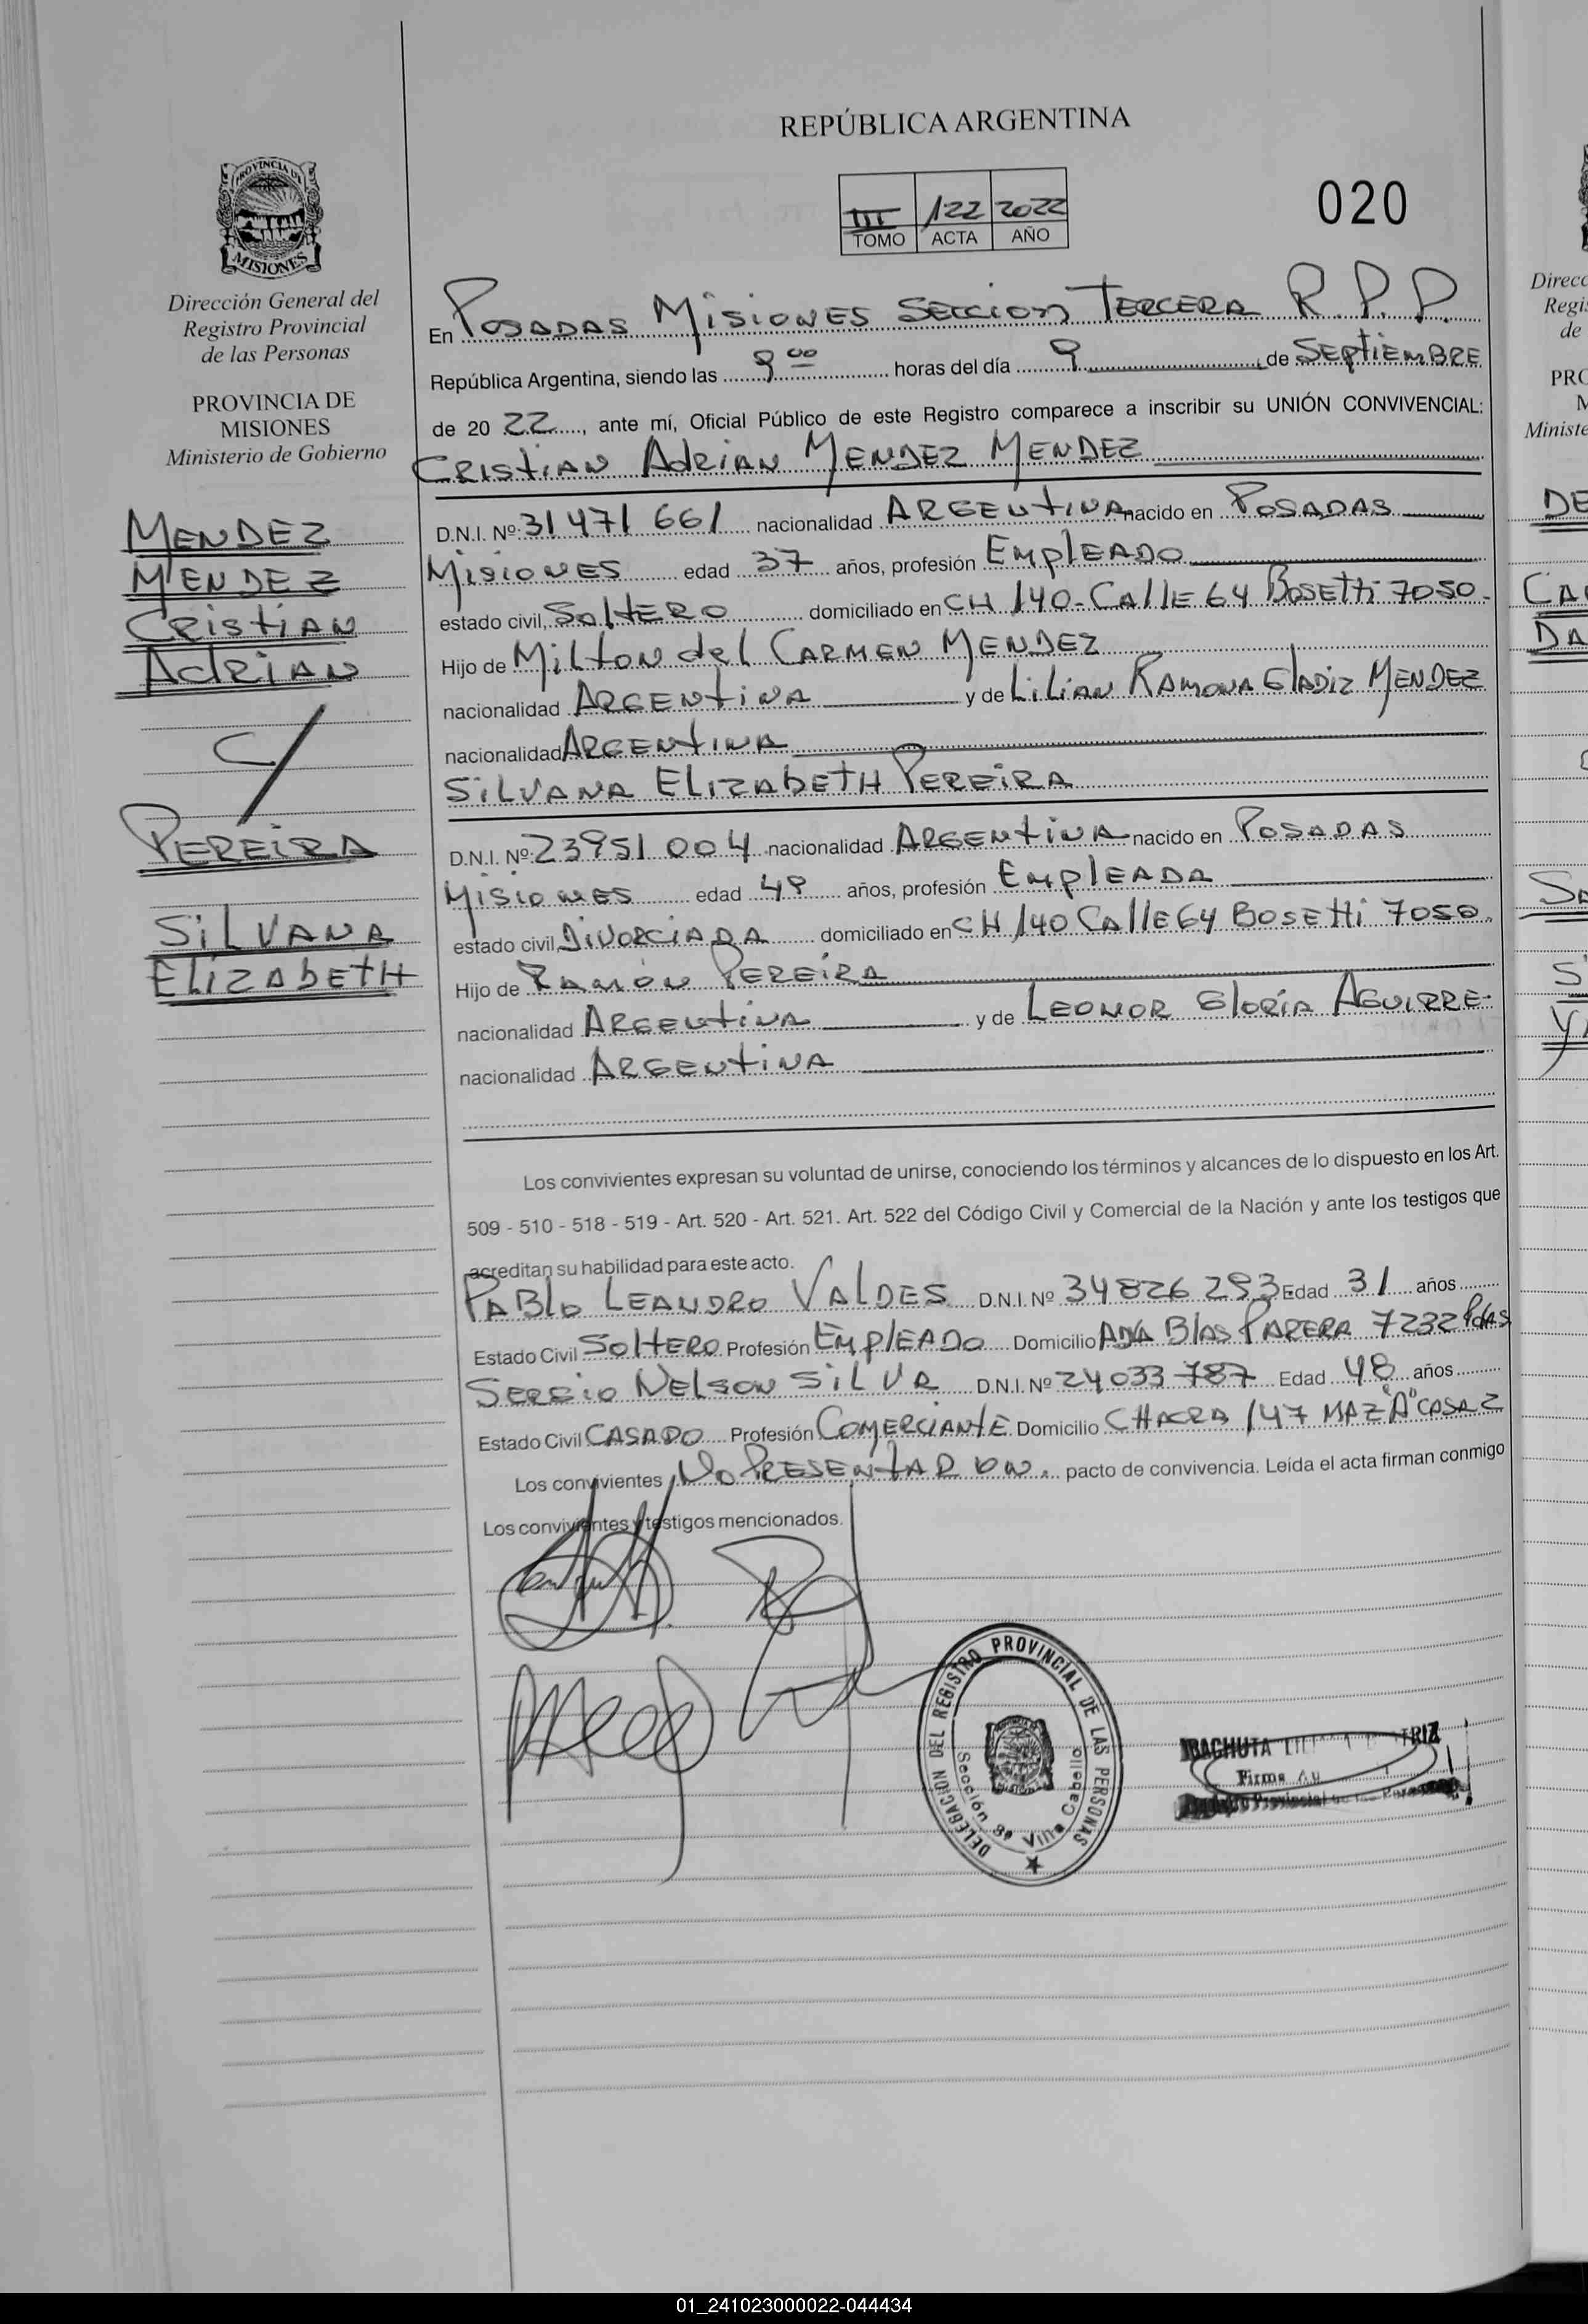 REPÚBLICA ARGENTINA
III 122 2022
TOMO ACTA AÑO
020
PROVINCIA DE
MISIONES
Dirección General del
Registro Provincial
de las Personas
PROVINCIA DE
MISIONES
Ministerio de Gobierno
MENDEZ
MENDEZ
CRISTIAN
ADRIAN
C/
PEREIRA
SILVANA
ELIZABETH
En POSADAS MISIONES SECCION TERCERA R.P.P.
República Argentina, siendo las 9 00 horas del día 9 de SEPTIEMBRE
de 20 22, ante mí, Oficial Público de este Registro comparece a inscribir su UNIÓN CONVIVENCIAL:
CRISTIAN ADRIAN MENDEZ MENDEZ
D.N.I. Nº 31471661 nacionalidad ARGENTINA nacido en POSADAS
MISIONES edad 37 años, profesión EMPLEADO
estado civil, SOLTERO domiciliado en CH 140-CALLE 64 BOSETTI 7050.
Hijo de MILTON del CARMEN MENDEZ
nacionalidad ARGENTINA y de LILIAN RAMONA GLADIZ MENDEZ
nacionalidad ARGENTINA
SILVANA ELIZABETH PEREIRA
D.N.I. Nº 23951004 nacionalidad ARGENTINA nacido en POSADAS
MISIONES edad 48 años, profesión EMPLEADA
estado civil, DIVORCIADA domiciliado en CH 140 CALLE 64 BOSETTI 7050.
Hijo de RAMÓN PEREIRA
nacionalidad ARGENTINA y de LEONOR GLORIA AGUIRRE-
nacionalidad ARGENTINA
Los convivientes expresan su voluntad de unirse, conociendo los términos y alcances de lo dispuesto en los Art.
509 - 510 - 518 - 519 - Art. 520 - Art. 521. Art. 522 del Código Civil y Comercial de la Nación y ante los testigos que
acreditan su habilidad para este acto.
PABLO LEANDRO VALDES D.N.I. Nº 34826293 Edad 31 años
Estado Civil SOLTERO Profesión EMPLEADO Domicilio ADA BLAS PARERA 7232 Pdas
SERGIO NELSON SILVA D.N.I. Nº 24033787 Edad 48 años
Estado Civil CASADO Profesión COMERCIANTE Domicilio CHACRA 147 MAZ "A" CASA 2
Los convivientes NO PRESENTARON. pacto de convivencia. Leída el acta firman conmigo
Los convivientes y testigos mencionados.
DELEGACION DEL REGISTRO PROVINCIAL DE LAS PERSONAS
Sección 3ª Villa Cabello
Firma
Direc
Regis
de
PRO
M
Ministe
DE
CA
DA
01_241023000022-044434